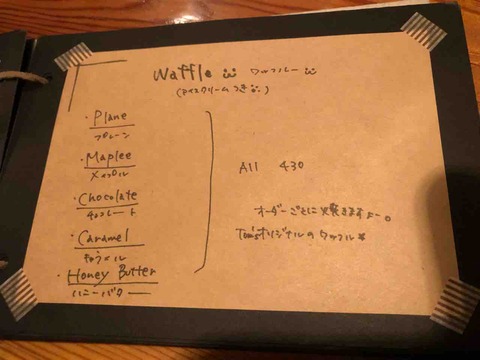 Waffle ワッフルー
(アイスクリームつき)
・Plane
プレーン
・Maplee
メイプル
・Chocolate
チョコレート
・Caramel
キャラメル
・Honey Butter
ハニーバター
All 430
オーダーごとに焼きますよー。
Tom'sオリジナルのワッフル